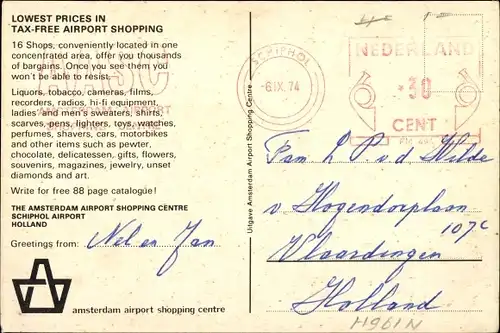 LOWEST PRICES IN
TAX-FREE AIRPORT SHOPPING
16 Shops, conveniently located in one
concentrated area, offer you thousands
of bargains. Once you see them you
won't be able to resist.
Liquors, tobacco, cameras, films,
recorders, radios, hi-fi equipment,
ladies' and men's sweaters, shirts,
scarves, pens, lighters, toys, watches,
perfumes, shavers, cars, motorbikes
and other items such as pewter,
chocolate, delicatessen, gifts, flowers,
souvenirs, magazines, jewelry, unset
diamonds and art.
Write for free 88 page catalogue!
THE AMSTERDAM AIRPORT SHOPPING CENTRE
SCHIPHOL AIRPORT
HOLLAND
Greetings from: Nel en Jan
amsterdam airport shopping centre
Uitgave Amsterdam Airport Shopping Centre
SCHIPHOL
-6.IX.74
NEDERLAND
30
CENT
AMSTERDAM AIRPORT
SHOPPING CENTRE
Fam. L P v d Wilde
v Hogendorplaan
107c
Vlaardingen
Holland
H961N